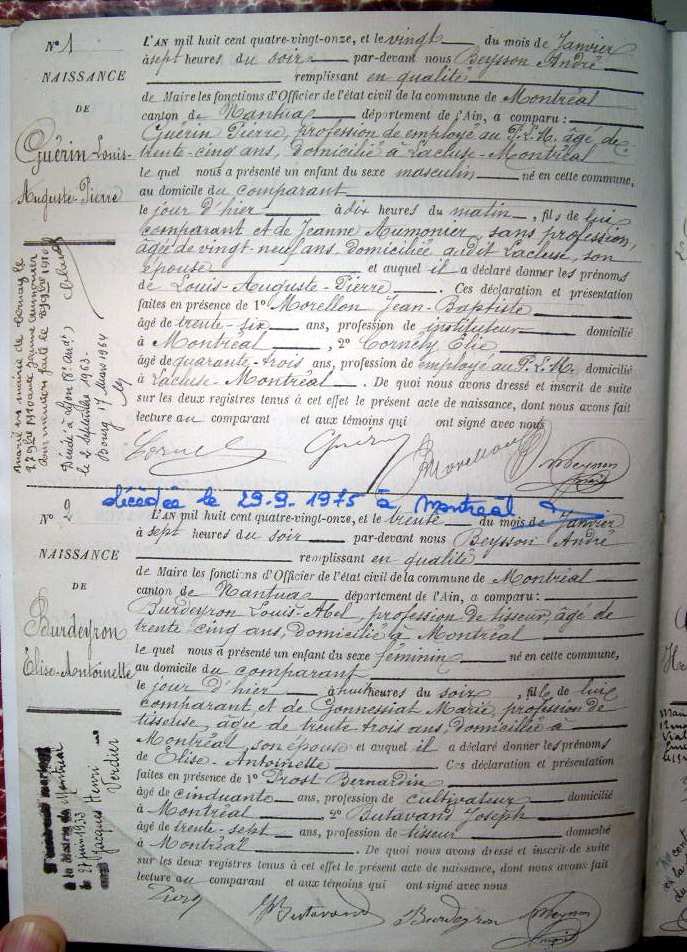 N° 1
NAISSANCE
DE
Guérin Louis-
Auguste-Pierre
L'AN mil huit cent quatre-vingt-onze, et le vingt du mois de Janvier
à sept heures du soir par-devant nous Beysson André
remplissant en qualité
de Maire les fonctions d'Officier de l'état civil de la commune de Montréal
canton de Nantua département de l'Ain, a comparu :
Guérin Pierre, profession de employé au P.L.M. âgé de
trente-cinq ans, domicilié à Lacluse-Montréal
le quel nous a présenté un enfant du sexe masculin né en cette commune,
au domicile du comparant
le jour d'hier à dix heures du matin, fils de lui
comparant et de Jeanne Aumonier, sans profession,
âgée de vingt-neuf ans domiciliée audit Lacluse, son
épouse et auquel il a déclaré donner les prénoms
de Louis-Auguste-Pierre. Ces déclaration et présentation
faites en présence de 1° Morellon Jean-Baptiste
âgé de trente-six ans, profession de instituteur domicilié
à Montréal, 2° Cornely Elie
âgé de quarante-trois ans, profession de employé au P.L.M. domicilié
à Lacluse-Montréal. De quoi nous avons dressé et inscrit de suite
sur les deux registres tenus à cet effet le présent acte de naissance, dont nous avons fait
lecture au comparant et aux témoins qui ont signé avec nous
Marié en mairie de
Décédé à Lyon
le 2 septembre 1963.
Bourg 17 Mars 1964
Guérin
Morellon
décédée le 29-9-1975 à Montréal
N° 2
NAISSANCE
DE
Burdeyron
Élise-Antoinette
L'AN mil huit cent quatre-vingt-onze, et le trente du mois de Janvier
à sept heures du soir par-devant nous Beysson André
remplissant en qualité
de Maire les fonctions d'Officier de l'état civil de la commune de Montréal
canton de Nantua département de l'Ain, a comparu :
Burdeyron Louis Abel, profession de tisseur, âgé de
trente cinq ans, domicilié à Montréal
le quel nous a présenté un enfant du sexe féminin né en cette commune,
au domicile du comparant
le jour d'hier à huit heures du soir, fille de lui
comparant et de Gonnessiat Marie, profession de
tisseuse, âgée de trente trois ans, domiciliée à
Montréal, son épouse et auquel il a déclaré donner les prénoms
de Élise-Antoinette Ces déclaration et présentation
faites en présence de 1° Prost Bernardin
âgé de cinquante ans, profession de cultivateur domicilié
à Montréal, 2° Butavand Joseph
âgé de trente-sept ans, profession de tisseur domicilié
à Montréal. De quoi nous avons dressé et inscrit de suite
sur les deux registres tenus à cet effet le présent acte de naissance, dont nous avons fait
lecture au comparant et aux témoins qui ont signé avec nous
à la Mairie de Montréal
le 27 juin 1933
Jacques Henri
Verdur
Butavand
Burdeyron